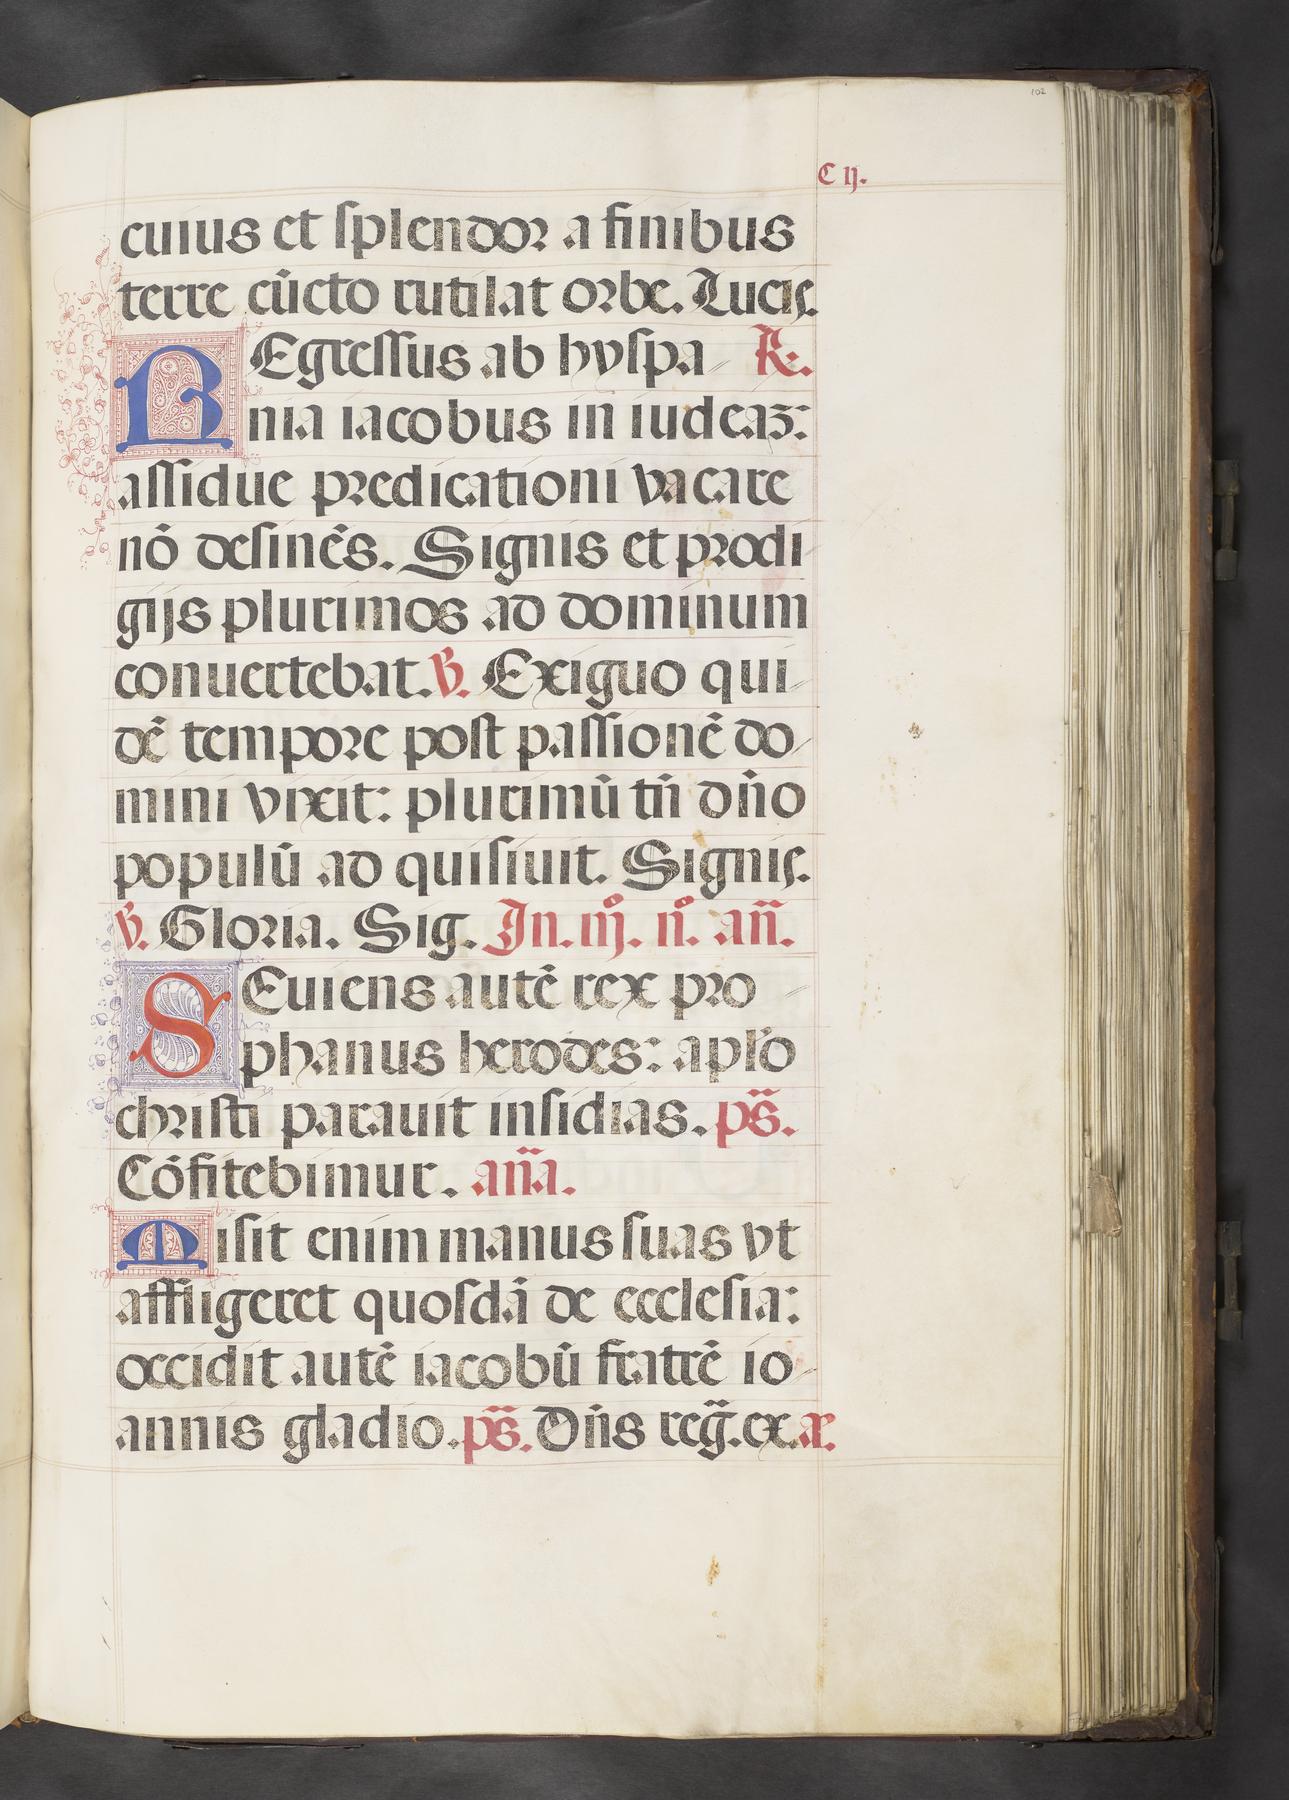 102
C ij.
cuius et splendor a finibus
terre cūcto rutilat orbe. Lucis.
REgressus ab hyspa R.
nia iacobus in iudeaz:
assidue predicationi vacare
nō desinēs. Signis et prodi
gijs plurimos ad dominum
conuertebat. V. Exiguo qui
dē tempore post passionē do
mini vixit: plurimū tn̄ dn̄o
populū ad quisiuit. Signis.
V. Gloria. Sig. In. iij. n. an̄.
SEuiens autē rex pro
phanus herodes: aplo
christi parauit insidias. ps̄.
Cōfitebimur. an̄a.
Misit enim manus suas vt
affligeret quosdā de ecclesia:
occidit autē iacobū fratrē io
annis gladio. ps̄. Dn̄s reḡ. ex. a.